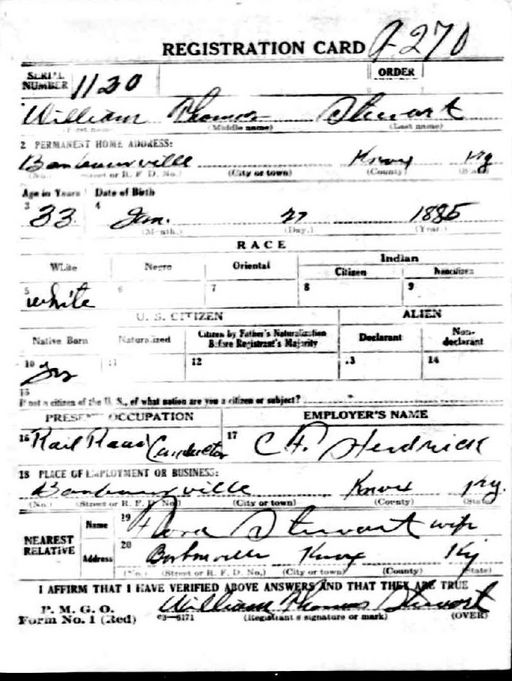 REGISTRATION CARD A-270
SERIAL NUMBER 1120 ORDER
William Thomas Stewart
(First name) (Middle name) (Last name)
2 PERMANENT HOME ADDRESS:
Barbourville Knox Ky
(No.) (Street or R. F. D. No.) (City or town) (County) (State)
Age in Years Date of Birth
3 33 4 Jan. 27 1885
(Month.) (Day.) (Year.)
RACE
White Negro Oriental Indian
Citizen Noncitizen
5 white 6 7 8 9
U. S. CITIZEN ALIEN
Native Born Naturalized Citizen by Father's Naturalization Before Registrant's Majority Declarant Non-declarant
10 yes 11 12 13 14
15
If not a citizen of the U. S., of what nation are you a citizen or subject?
PRESENT OCCUPATION EMPLOYER'S NAME
16 Rail Road Conductor 17 Hendrick
18 PLACE OF EMPLOYMENT OR BUSINESS:
Barbourville Knox Ky.
(No.) (Street or R. F. D. No.) (City or town) (County) (State)
NEAREST RELATIVE
Name 19 Flora Stewart wife
Address 20 Knox Ky
(No.) (Street or R. F. D. No.) (City or town) (County) (State)
I AFFIRM THAT I HAVE VERIFIED ABOVE ANSWERS AND THAT THEY ARE TRUE
P. M. G. O.
Form No. 1 (Red) 03-6171 William Thomas Stewart
(Registrant's signature or mark) (OVER)